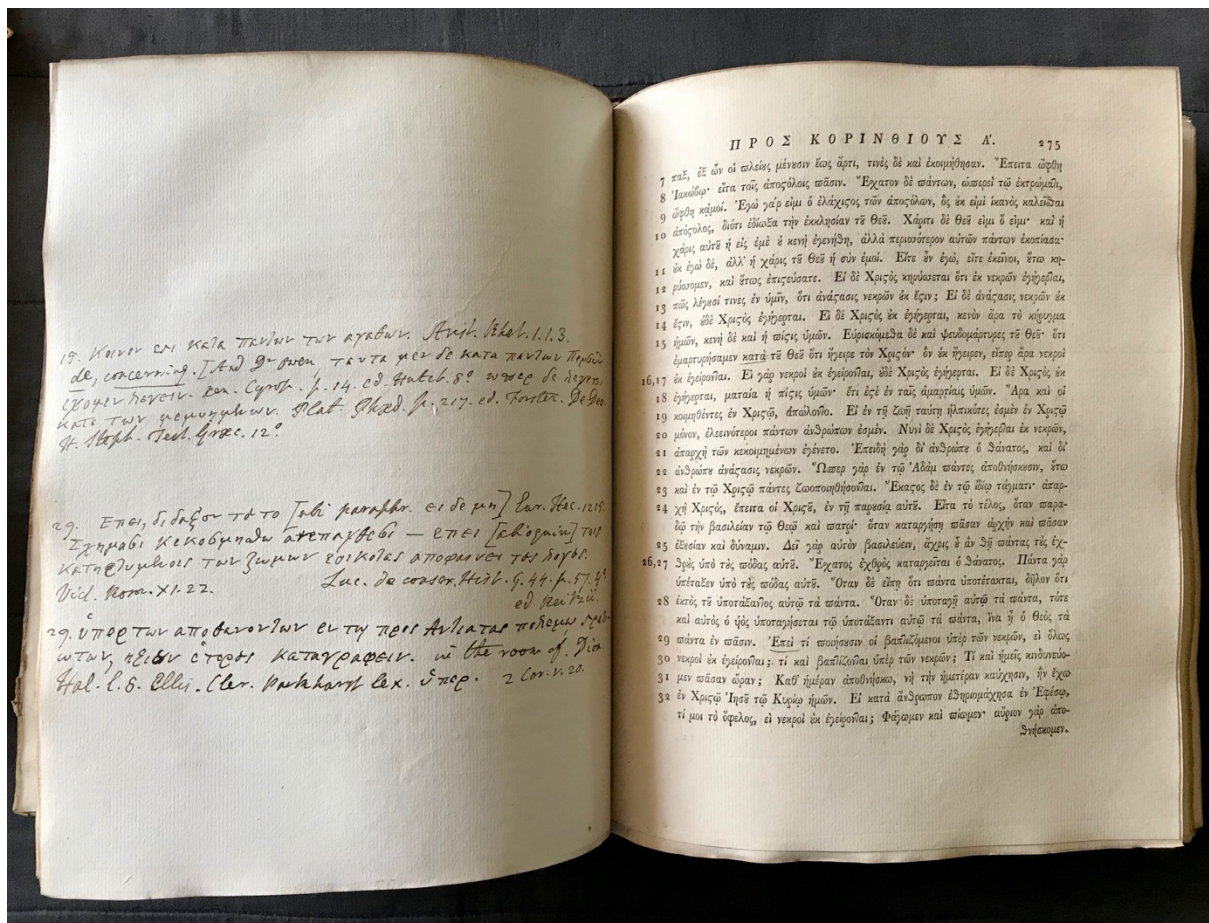 15. Κοινον εςι κατα παντων των αγαθων. Arist. Rhet. 1.1.3.
de, concerning. [And Dr Owen ταυτα μεν δε κατα παντων Περσων
εχομεν λεγειν. Xen. Cyrop. p. 14. ed. Hutch. 8º ωσπερ δε λεγεται
κατα των Plat. Phæd. p. 217. ed. Forster. De Deo
H. Steph. Test. Græc. 12º
29. Επει, διδαξον τατο [abi paraphr. ει δε μη] Eur. Hec. 1215.
κεκοσμησθω ανεπαχθεσι — επει τοις
των ζωμων εοικοτας αποφαινει τους λογους.
Vid. Rom. XI. 22. Luc. de conscr. Hist. §. 44. p. 57. 4º
ed Reitzii.
29. ὑπερ των αποθανοντων εν τῳ προς Αντιατας πολεμῳ ςρατι-
ωτων, ηξιουν ἑτερους καταγραφειν. in the room of. Dion
Hal. l. 8. Ellis. Cler. Parkhurst Lex. ὑπερ. 2 Cor. v. 20.
ΠΡΟΣ ΚΟΡΙΝΘΙΟΥΣ Α΄. 275
7 παξ, ἐξ ὧν οἱ πλείυς μένυσιν ἕως ἄρτι, τινὲς δὲ καὶ ἐκοιμήθησαν. Ἔπειτα ὤφθη
8 Ἰακώβῳ· εἶτα τοῖς ἀποςόλοις πᾶσιν. Ἔχατον δὲ πάντων, ὡσπερεὶ τῷ ἐκτρώμαλι,
9 ὤφθη κἀμοί. Ἐγὼ γάρ εἰμι ὁ ἐλάχιςος τῶν ἀποςόλων, ὃς ἐκ εἰμὶ ἱκανὸς καλεῖσθαι
10 ἀπόςολος, διότι ἐδίωξα τὴν ἐκκλησίαν τȣ̃ Θεȣ̃. Χάριτι δὲ Θεȣ̃ εἰμι ὅ εἰμι· καὶ ἡ
χάρις αὐτȣ̃ ἡ εἰς ἐμὲ ȣ̓ κενὴ ἐγενήθη, ἀλλὰ περισσότερον αὐτῶν πάντων ἐκοπίασα·
11 ȣ̓κ ἐγὼ δὲ, ἀλλ' ἡ χάρις τȣ̃ Θεȣ̃ ἡ σὺν ἐμοί. Εἴτε ȣ̓͂ν ἐγὼ, εἴτε ἐκεῖνοι, ȣ̔́τω κη-
12 ρύσσομεν, καὶ ȣ̔́τως ἐπιςεύσατε. Εἰ δὲ Χριςὸς κηρύσσεται ὅτι ἐκ νεκρῶν ἐγήγερται,
13 πῶς λέγȣσί τινες ἐν ὑμῖν, ὅτι ἀνάςασις νεκρῶν ȣ̓κ ἔςιν; Εἰ δὲ ἀνάςασις νεκρῶν ȣ̓κ
14 ἔςιν, ȣ̓δὲ Χριςὸς ἐγήγερται. Εἰ δὲ Χριςὸς ȣ̓κ ἐγήγερται, κενὸν ἄρα τὸ κήρυγμα
15 ἡμῶν, κενὴ δὲ καὶ ἡ πίςις ὑμῶν. Εὑρισκόμεθα δὲ καὶ ψευδομάρτυρες τȣ̃ Θεȣ̃· ὅτι
ἐμαρτυρήσαμεν κατὰ τȣ̃ Θεȣ̃ ὅτι ἤγειρε τὸν Χριςόν· ὃν ȣ̓κ ἤγειρεν, εἴπερ ἄρα νεκροὶ
16,17 ȣ̓κ ἐγείρονται. Εἰ γὰρ νεκροὶ ȣ̓κ ἐγείρονται, ȣ̓δὲ Χριςὸς ἐγήγερται. Εἰ δὲ Χριςὸς ȣ̓κ
18 ἐγήγερται, ματαία ἡ πίςις ὑμῶν· ἔτι ἐςὲ ἐν ταῖς ἁμαρτίαις ὑμῶν. Ἄρα καὶ οἱ
19 κοιμηθέντες ἐν Χριςῷ, ἀπώλοντο. Εἰ ἐν τῇ ζωῇ ταύτῃ ἠλπικότες ἐσμὲν ἐν Χριςῷ
20 μόνον, ἐλεεινότεροι πάντων ἀνθρώπων ἐσμέν. Νυνὶ δὲ Χριςὸς ἐγήγερται ἐκ νεκρῶν,
21 ἀπαρχὴ τῶν κεκοιμημένων ἐγένετο. Ἐπειδὴ γὰρ δι' ἀνθρώπȣ ὁ θάνατος, καὶ δι'
22 ἀνθρώπȣ ἀνάςασις νεκρῶν. Ὥσπερ γὰρ ἐν τῷ Ἀδὰμ πάντες ἀποθνήσκȣσιν, ȣ̔́τω
23 καὶ ἐν τῷ Χριςῷ πάντες ζωοποιηθήσονται. Ἕκαςος δὲ ἐν τῷ ἰδίῳ τάγματι· ἀπαρ-
24 χὴ Χριςὸς, ἔπειτα οἱ Χριςȣ̃, ἐν τῇ παρȣσίᾳ αὐτȣ̃. Εἶτα τὸ τέλος, ὅταν παρα-
δῷ τὴν βασιλείαν τῷ Θεῷ καὶ πατρί· ὅταν καταργήσῃ πᾶσαν ἀρχὴν καὶ πᾶσαν
25 ἐξȣσίαν καὶ δύναμιν. Δεῖ γὰρ αὐτὸν βασιλεύειν, ἄχρις ȣ̔͂ ἂν θῇ πάντας τȣ̀ς ἐχ-
26,27 θρȣ̀ς ὑπὸ τȣ̀ς πόδας αὐτȣ̃. Ἔχατος ἐχθρὸς καταργεῖται ὁ θάνατος. Πάντα γὰρ
ὑπέταξεν ὑπὸ τȣ̀ς πόδας αὐτȣ̃. Ὅταν δὲ εἴπῃ ὅτι πάντα ὑποτέτακται, δῆλον ὅτι
28 ἐκτὸς τȣ̃ ὑποτάξαντος αὐτῷ τὰ πάντα. Ὅταν δὲ ὑποταγῇ αὐτῷ τὰ πάντα, τότε
καὶ αὐτὸς ὁ υἱὸς ὑποταγήσεται τῷ ὑποτάξαντι αὐτῷ τὰ πάντα, ἵνα ᾖ ὁ Θεὸς τὰ
29 πάντα ἐν πᾶσιν. Ἐπεὶ τί ποιήσȣσιν οἱ βαπτιζόμενοι ὑπὲρ τῶν νεκρῶν, εἰ ὅλως
30 νεκροὶ ȣ̓κ ἐγείρονται; τί καὶ βαπτίζονται ὑπὲρ τῶν νεκρῶν; Τί καὶ ἡμεῖς κινδυνεύο-
31 μεν πᾶσαν ὥραν; Καθ' ἡμέραν ἀποθνήσκω, νὴ τὴν ἡμετέραν καύχησιν, ἣν ἔχω
32 ἐν Χριςῷ Ἰησȣ̃ τῷ Κυρίῳ ἡμῶν. Εἰ κατὰ ἄνθρωπον ἐθηριομάχησα ἐν Ἐφέσῳ,
τί μοι τὸ ὄφελος, εἰ νεκροὶ ȣ̓κ ἐγείρονται; Φάγωμεν καὶ πίωμεν· αὔριον γὰρ ἀπο-
θνήσκομεν.